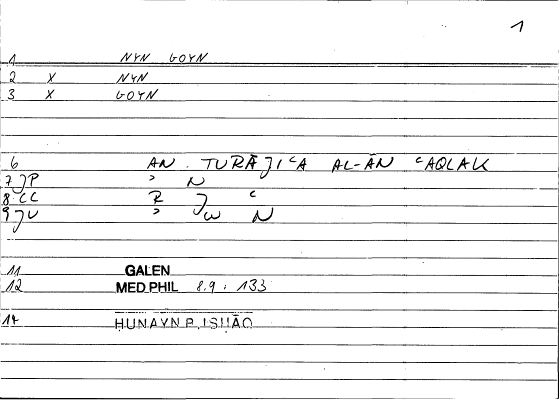 1
1 NYN GOYN
2 X NYN
3 X GOYN
6 AN . TURĀJIʿA AL-ĀN ʿAQLAK
7 JP ʾ N
8 CC R J ʿ
9 JV ʾ W N
11 GALEN
12 MED.PHIL 8.9 : 133
14 ḤUNAYN B. ISḤĀQ